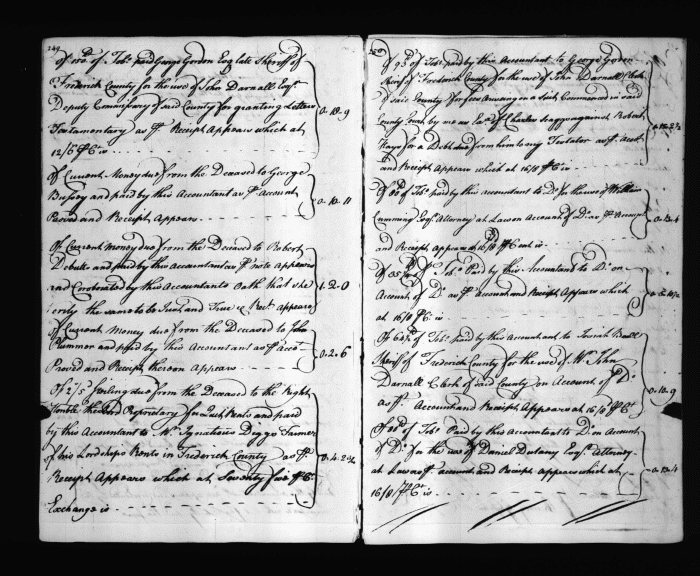 249
Of 150 lb of Tobo. paid George Gordon Esq late Sheriff of
Frederick County for the use of John Darnall Esqr.
Deputy Commissary of said County for granting Letters
Testamentary as pr. Receipt Appears which at
12/6 pr Ct is 0..18..9
Of Current Money due from the Deceased to George
Busey and paid by this Accountant as pr Account
Proved and Receipt Appears 0..10..11
Of Current Money due from the Deceased to Robert
Debutt and paid by this Accountant as pr note Appears
and Corroborated by this Accountants Oath that she
the same to be Just and True & Rect. appears 1..2..0
Of Current Money due from the Deceased to John
Plummer and paid by this Accountant as pr Acct
Proved and Receipt thereon Appears 0..2..6
Of 2/5 Sterling due from the Deceased to the Right
Honble the Lord Proprietary for Quit Rents and paid
by this Accountant to Mr. Ignatius Diggs Farmer
of his Lordships Rents in Frederick County as pr
Receipt Appears which at Seventy five pr Ct
Exchange is 0..4..2¾
250
Of of Tobo. paid by this Accountant to George Gordon
Sheriff of Frederick County for the use of John Darnall Clerk
of said County for fees on a Suit Commenced in said
County Court by me as of Charles against Robert
for a Debt due from him to my Testator as pr Acct
and Receipt Appears which at 16/8 pr Ct is
Of of Tobo. paid by this Accountant to Do. for the use of William
Cumming Esqr. Attorney at Law on Account of Do. as pr Account
and Receipt Appears at 16/8 pr Cent is 0..13..4
Of of Tobo. Paid by this Accountant to Do. on
Account of Do. as pr account and Receipt Appears which
at 16/8 pr Ct is
Of of Tobo. paid by this Accountant to Josiah Beall
Sheriff of Frederick County for the use of Mr. John
Darnall Clerk of said County on Account of Do.
as pr Account and Receipt Appears at 16/8 pr Ct
Of of Tobo. Paid by this Accountant to Do. on Account
of Do. for the use of Daniel Dulany Esqr. Attorney
at Law as pr account and Receipt appears which at
16/8 pr Ct is 0..13..4